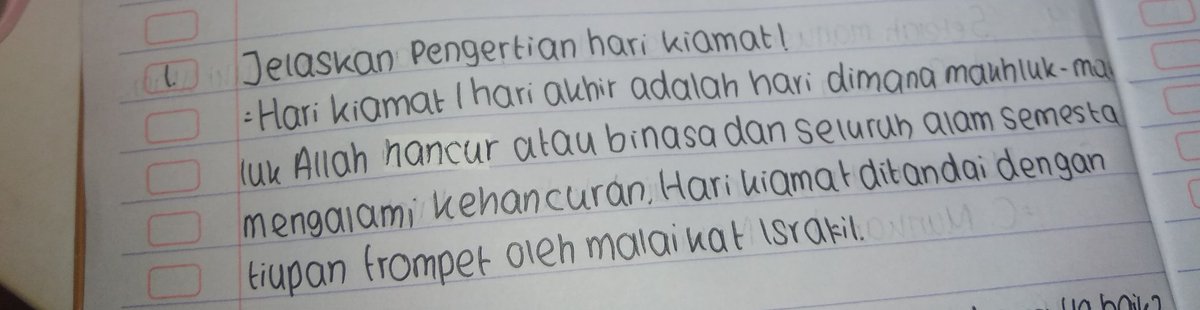 1. Jelaskan Pengertian hari kiamat!
=Hari kiamat / hari akhir adalah hari dimana makhluk-ma
luk Allah hancur atau binasa dan seluruh alam semesta
mengalami kehancuran. Hari kiamat ditandai dengan
tiupan trompet oleh malaikat Israfil.